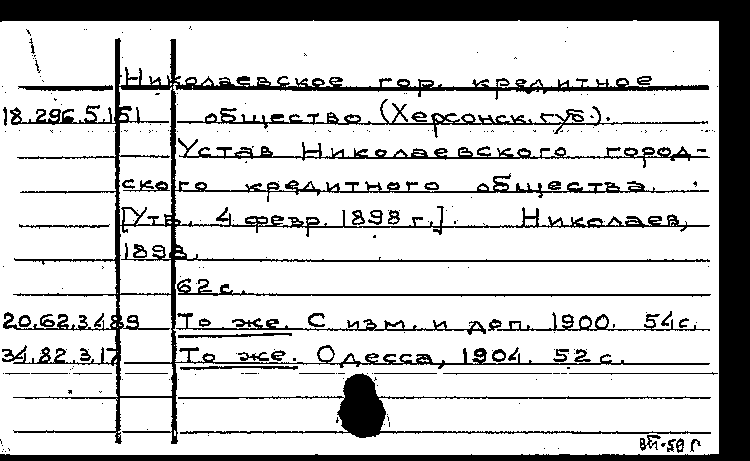 Николаевское гор. кредитное
18.296.5.151 общество. (Херсонск. губ.).
Устав Николаевского город-
ского кредитного общества.
[Утв. 4 февр. 1898 г.]. Николаев,
1898.
62 с.
20.62.3.489 То же. С изм. и доп. 1900. 54 с.
34.82.3.17 То же. Одесса, 1904. 52 с.